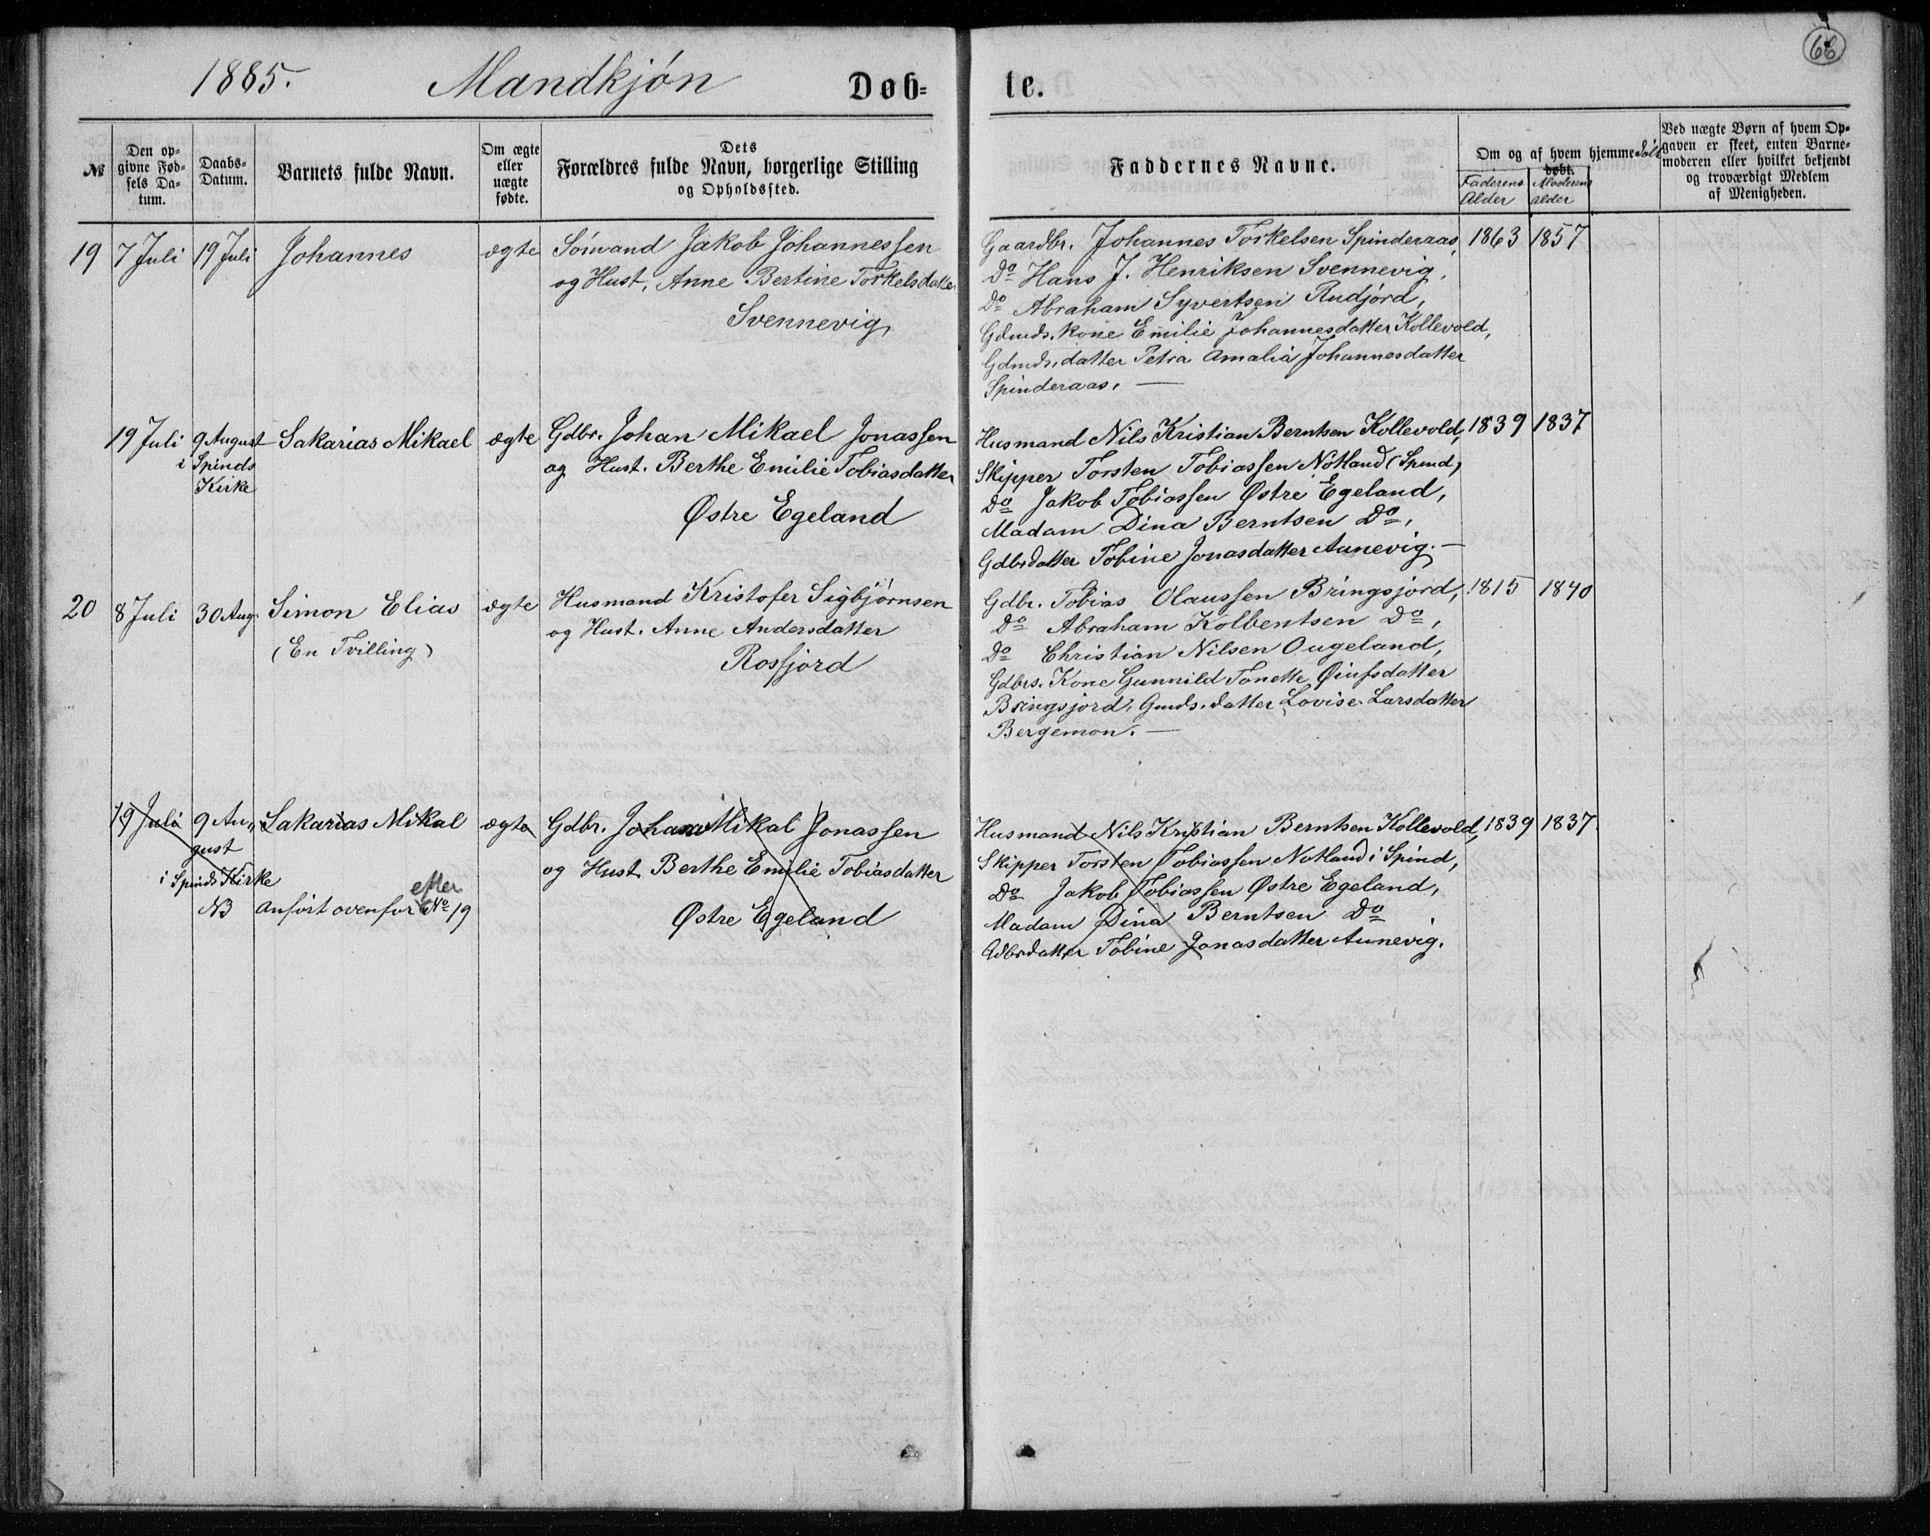 66
1885. Mandkjøn Døb= te.
№
Den op-
givne Fød-
sels Da-
tum.
Daabs-
Datum.
Barnets fulde Navn.
Om ægte
eller
uægte
fødte.
Dets
Forældres fulde Navn, borgerlige Stilling
og Opholdssted.
Faddernes Navne.
Om og af hvem hjemme-
døbt.
Faderens
Alder
Moderens
alder
Ved uægte Børn af hvem Op-
gaven er skeet, enten Barne-
moderen eller hvilket bekjendt
og troværdigt Medlem
af Menigheden.
19 7 Juli 19 Juli Johannes ægte Sömand Jakob Johannessen
og Hust. Anne Bertine Torkelsdatter
Svennevig
Gaardbr. Johannes Torkelsen Spinderaas, 1863 1857
Do Hans J. Henriksen Svennevig,
Do Abraham Syvertsen Rudjord,
Gdmds. kone Emilie Johannesdatter Kollevold,
Gdmds. datter Petra Amalia Johannesdatter
Spinderaas. —
19 Juli 9 August Sakarias Mikael ægte Gdbr. Johan Mikael Jonassen
i Spinds
Kirke
og Hust. Berthe Emilie Tobiasdatter
Østre Egeland
Husmand Nils Kristian Berntsen Kollevold, 1839 1837
Skipper Torsten Tobiassen Nötland (Spind)
Do Jakob Tobiassen Østre Egeland,
Madam Dina Berntsen Do,
Gdbrdatter Tobine Jonasdatter Aunevig. —
20 8 Juli 30 Aug. Simon Elias ægte Husmand Kristofer Sigbjørnsen
(En Tvilling)
og Hust. Anne Andersdatter
Rosfjord
Gdbr. Tobias Olaussen Bringsjord, 1815 1840
Do Abraham Kolbentsen Do,
Do Christian Nilsen Ougeland,
Gdbrs. Kone Gunnild Tonette Øiufsdatter
Bringsjord, Gmds. datter Lovise Larsdatter
Bergemon. —
19 Juli 9 Au- Sakarias Mikal ægte Gdbr. Johan Mikal Jonassen
gust
i Spinds Kirke
og Hust. Berthe Emilie Tobiasdatter
Østre Egeland
NB anfört ovenfor efter No 19
Husmand Nils Kristian Berntsen Kollevold, 1839 1837.
Skipper Torsten Tobiassen Notland i Spind,
Do Jakob Tobiassen Østre Egeland,
Madam Dina Berntsen Do,
Gdbrdatter Tobine Jonasdatter Aunevig.